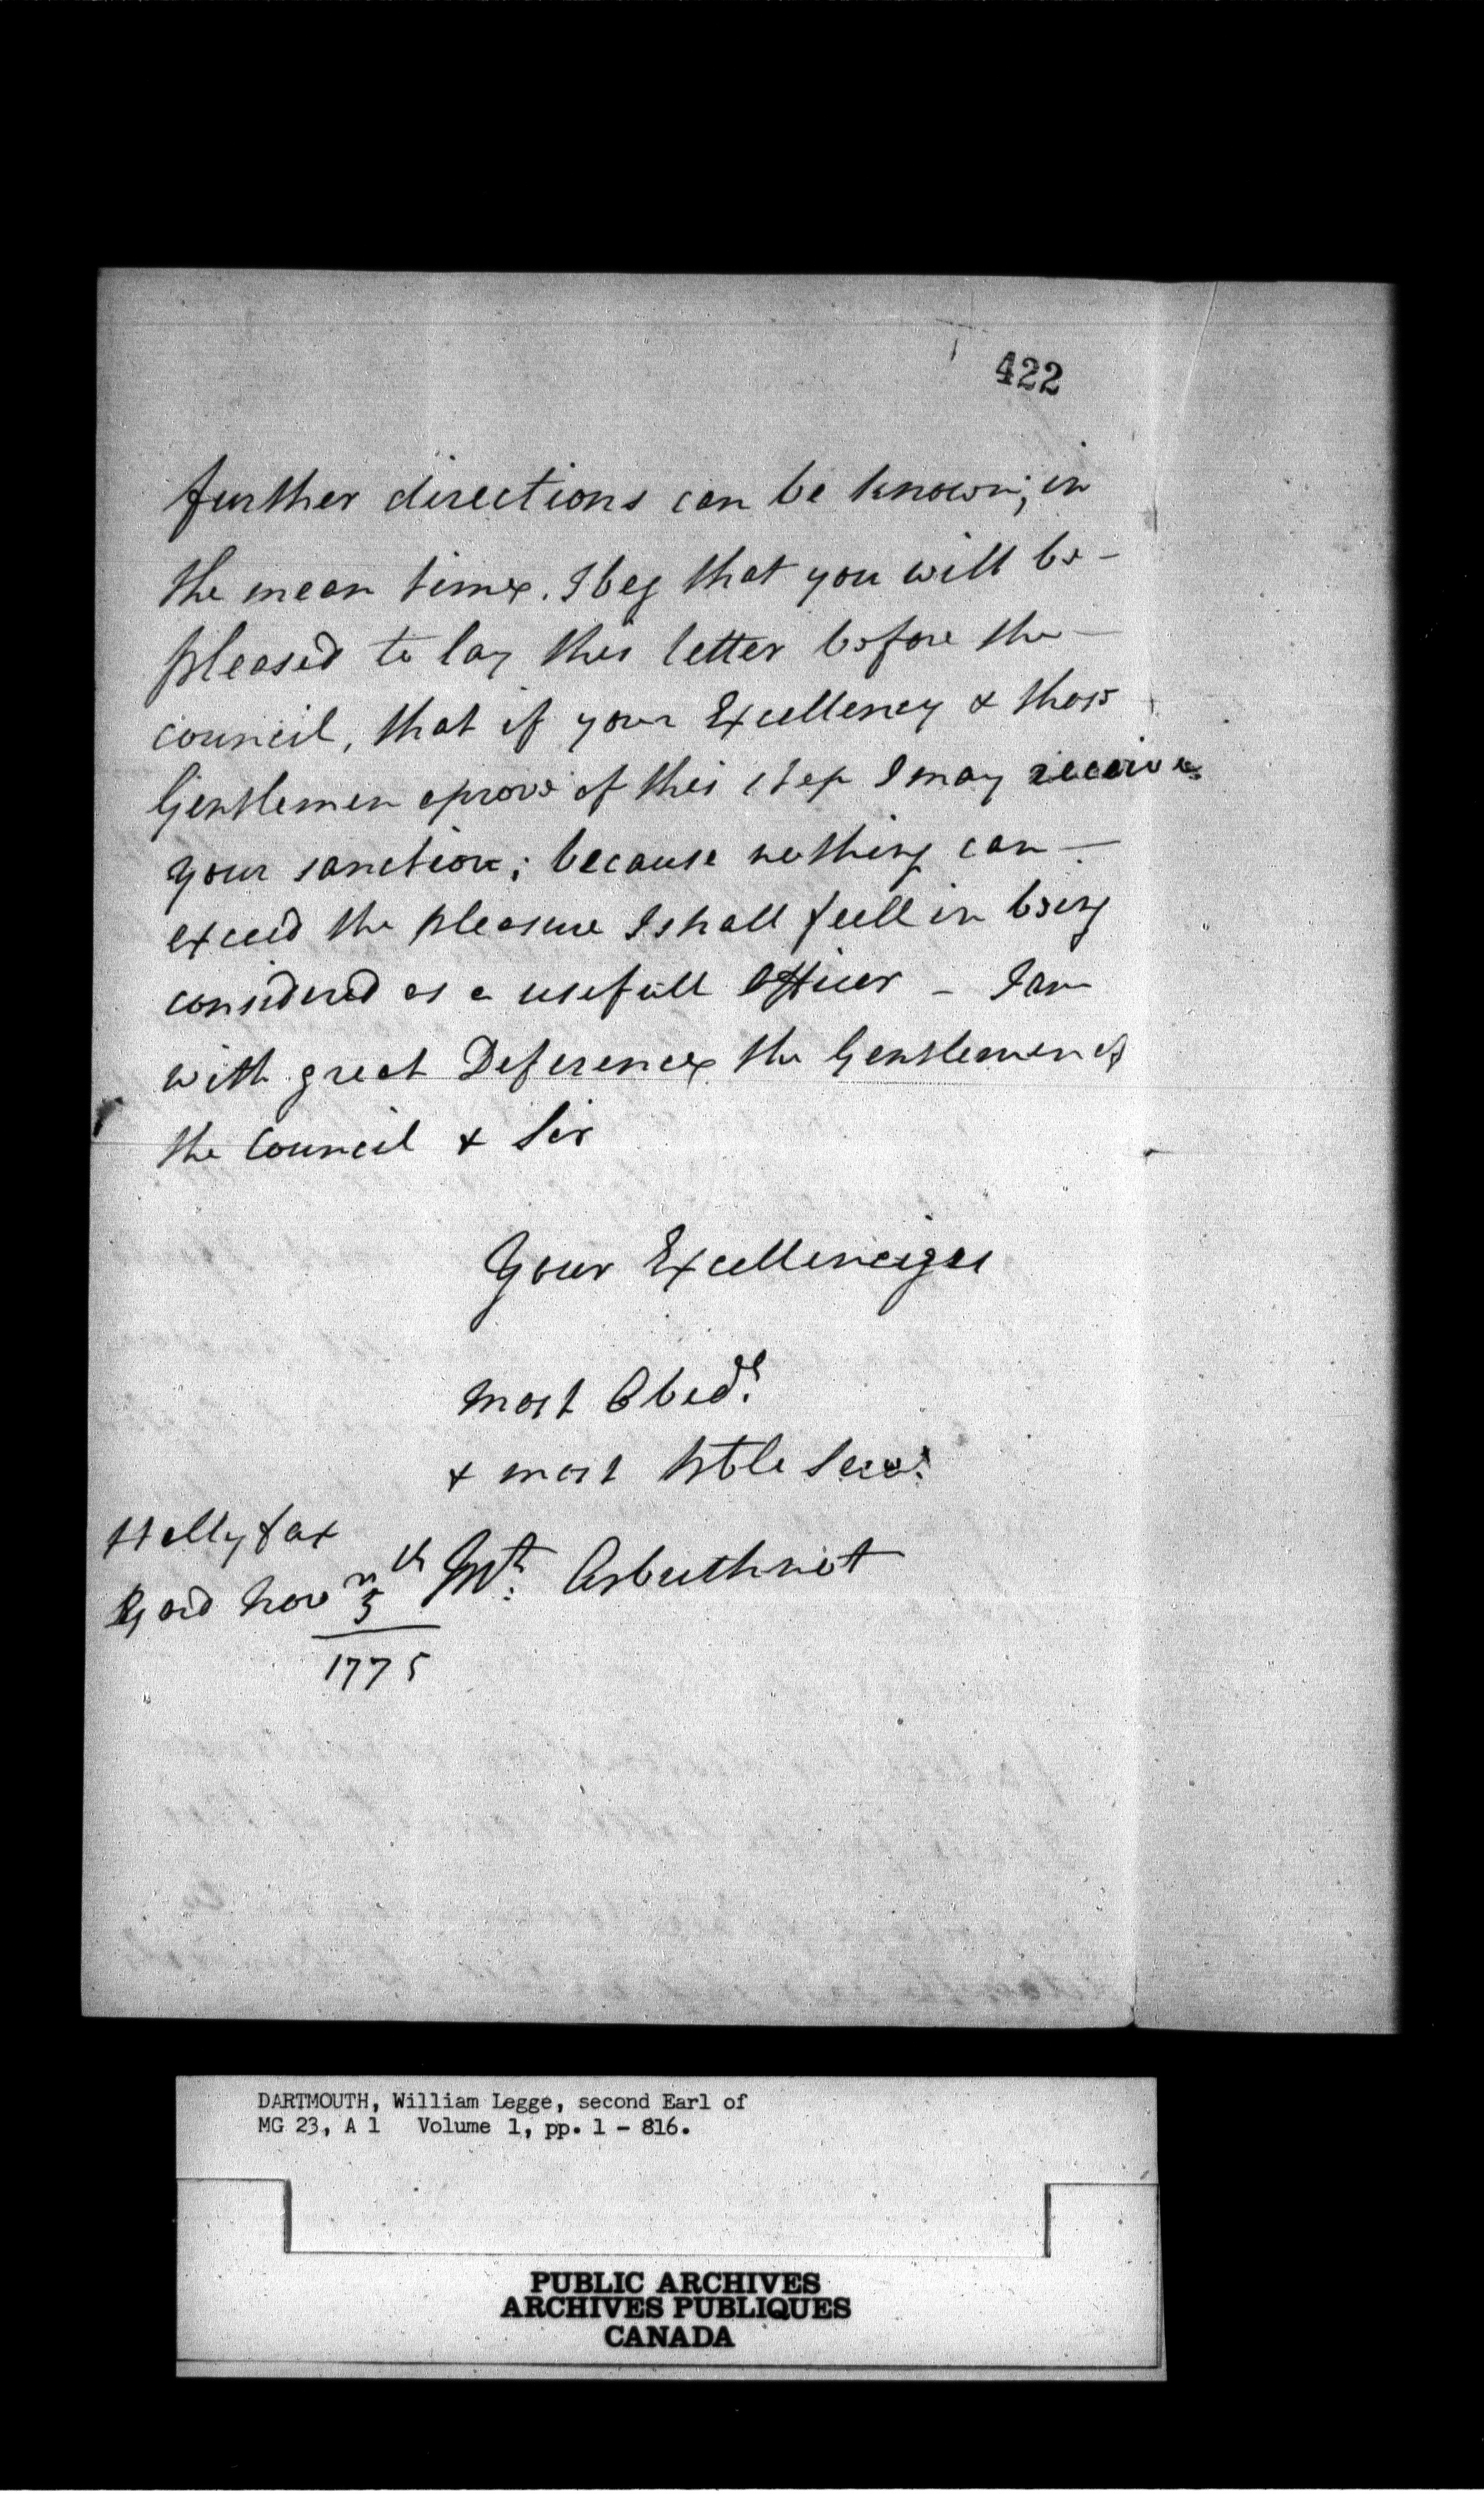 422
further directions can be known; in
the mean time. I beg that you will be -
pleased to lay this letter before the -
council, that if your Excellency & those
Gentlemen aprove of this step I may receive
your sanction; because nothing can -
exceed the pleasure I shall feell in being
considered as a usefull Officer - I am
with great Deference the Gentlemen of
the Council & Sir
Your Excellencyes
most Obedt
& most hble Servt
Hallyfax
Yard Novr 5th Mt: Arbuthnot
1775
DARTMOUTH, William Legge, second Earl of
MG 23, A 1 Volume 1, pp. 1 - 816.
PUBLIC ARCHIVES
ARCHIVES PUBLIQUES
CANADA